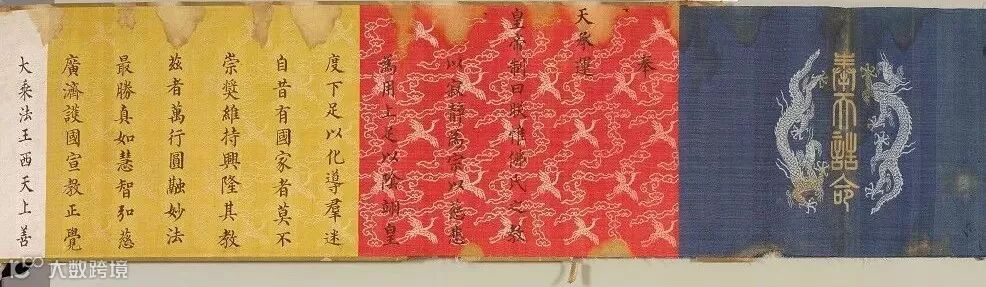 奉天誥命
奉
天承運
皇帝制曰朕惟佛氏之教
以寂靜為宗以慈悲
為用上足以陰翊皇
度下足以化導羣迷
自昔有國家者莫不
崇獎維持興隆其教
茲者萬行圓融妙法
最勝真如慧智弘慈
廣濟護國宣教正覺
大乘法王西天上善
大数跨境